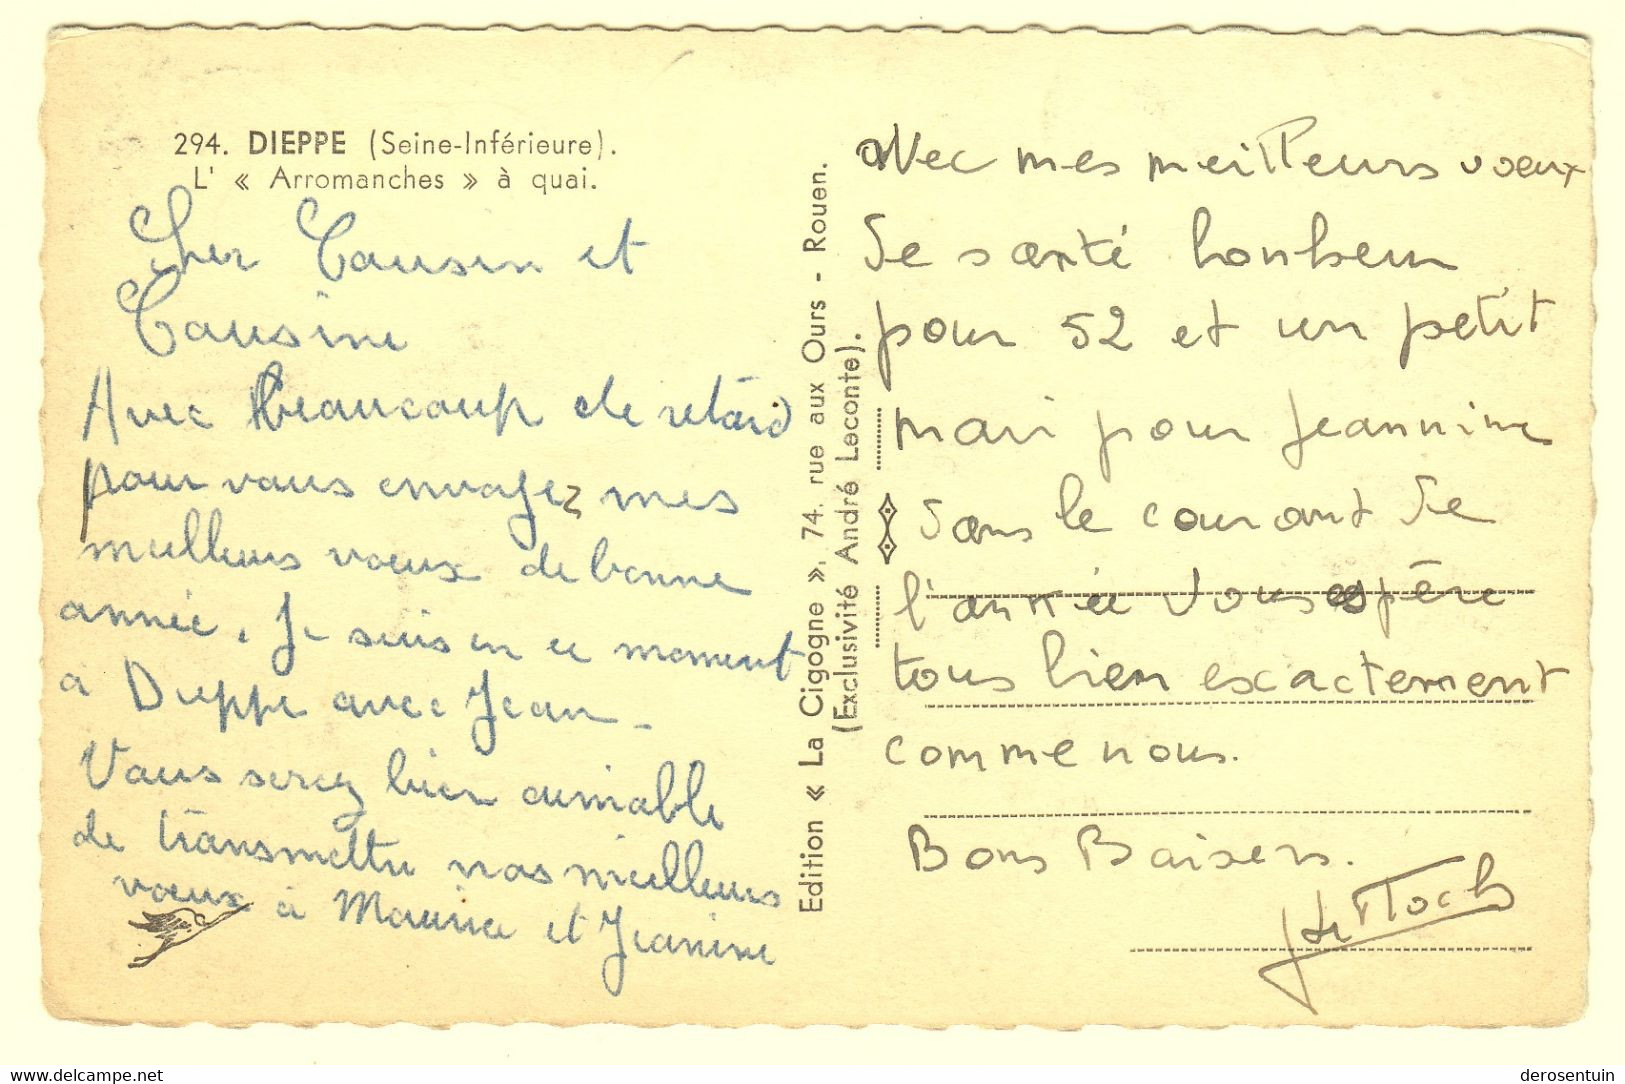 294. DIEPPE (Seine-Inférieure).
L' « Arromanches » à quai.
Cher Cousin et
Cousine
Avec Beaucoup de retard
pour vous envoyez mes
meilleurs vœux de bonne
année. Je suis en ce moment
à Dieppe avec Jean_
Vous serez bien aimable
de transmettre nos meilleurs
vœux à Maurice et Jeanine
Edition « La Cigogne », 74, rue aux Ours - Rouen.
(Exclusivité André Leconte).
Avec mes meilleurs voeux
de santé bonheur
pour 52 et un petit
mari pour Jeannine
dans le courant de
l'année Vous espère
tous bien exactement
comme nous.
Bons Baisers.
delcampe.net
derosentuin